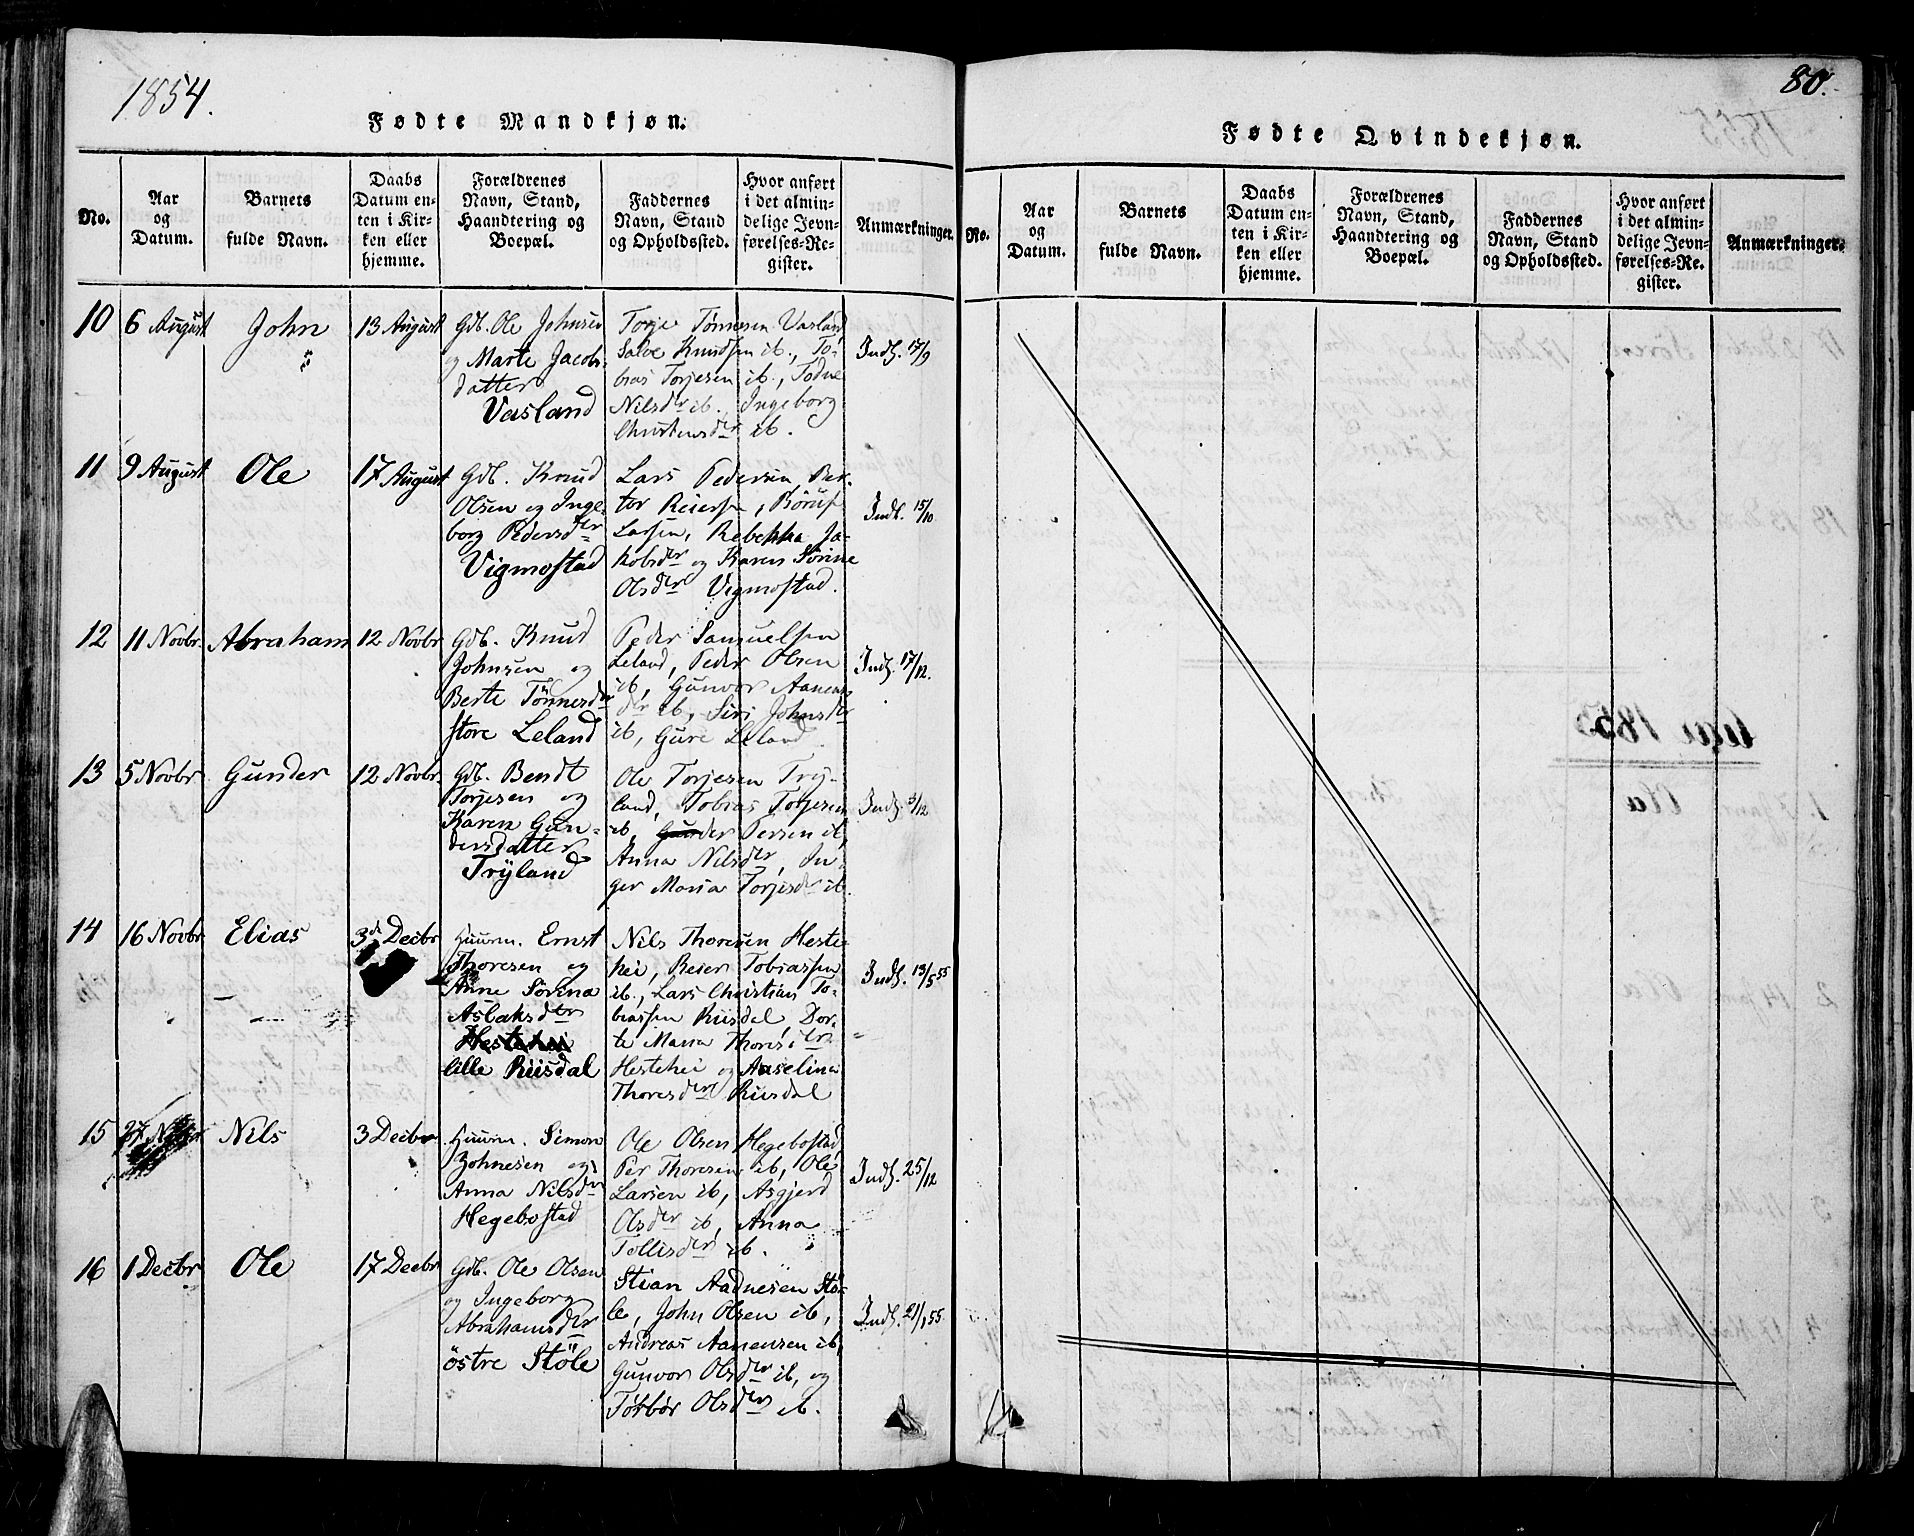 1854.
Fødte Mandkjøn.
No.
Aar og Datum.
Barnets fulde Navn.
Daabs Datum enten i Kirken eller hjemme.
Forældrenes Navn, Stand, Haandtering og Boepæl.
Faddernes Navn, Stand og Opholdssted.
Hvor anført i det almindelige Jevnførelses-Register.
Anmærkninger.
10 6 August John 13 August
Gdb. Ole Johnsen
og Marte Jacobs-
datter
Vasland
Torje Tönnesen Vasland
Salve Knudsen ib., To-
bias Torjesen ib., Todne
Nilsder ib., Ingeborg
Christensder ib.
Indf. 17/9
11 9 August Ole 17 August
Gdb. Knud
Olsen og Inge-
borg Pedersder
Vigmostad
Lars Pedersen, Per-
ter Reiersen, Börut
Larsen, Rebekka Ja-
kobsder og Karen Sörine
Olsder Vigmostad.
Indf. 15/10
12 11 Novbr. Abraham 12 Novbr
Gdb. Knud
Johnsen og
Berte Tönnesder
store Leland
Peder Samuelsen
Leland, Peder Olsen
ib, Gunvor Aanens
der ib, Siri Johnsder
ib, Guri Leland
Indf. 17/12.
13 5 Novbr Gunder 12 Novbr.
Gdb. Bendt
Torjesen og
Karen Gun-
dersdatter
Tryland
Ole Torjesen Try-
land, Tobias Torjesen
ib, Gunder Persen ib,
Anna Nilsder, In
ger Maria Torjesder ib.
Indf. 3/12
14 16 Novbr. Elias 3d Decbr
Huusm. Ernst
Thoresen og
Anne Sörina
Aslaksder
Hestehei
lille Riisdal
Nils Thoresen Heste-
hei, Reier Tobiassen
ib., Lars Christian To-
biassen Riisdal, Dor-
te Maria Thoresder
Hestehei og Anselina
Thoresder Riisdal
Indf. 13/5 55
15 27 Novbr Nils 3 Decbr
Huusm. Simon
Johnesen og
Anna Nilsder
Hegebostad
Ole Olsen Hegebostad,
Per Thoresen ib, Ole
Larsen ib, Asgjerd
Olsder ib, Anna
Tollisder ib.
Indf. 25/12
16 1 Decbr Ole 17 Decbr
Gdb. Ole Olsen
og Ingeborg
Abrahamsder
östre Stöle
Stian Aadnesen Stö-
le, John Olsen ib,
Andreas Aanensen ib,
Gunvor Olsder ib, og
Torbör Olsder ib.
Indf. 21/1 55
80.
Fødte Qvindekjøn.
No.
Aar og Datum.
Barnets fulde Navn.
Daabs Datum enten i Kirken eller hjemme.
Forældrenes Navn, Stand, Haandtering og Boepæl.
Faddernes Navn, Stand og Opholdssted.
Hvor anført i det almindelige Jevnførelses-Register.
Anmærkninger.